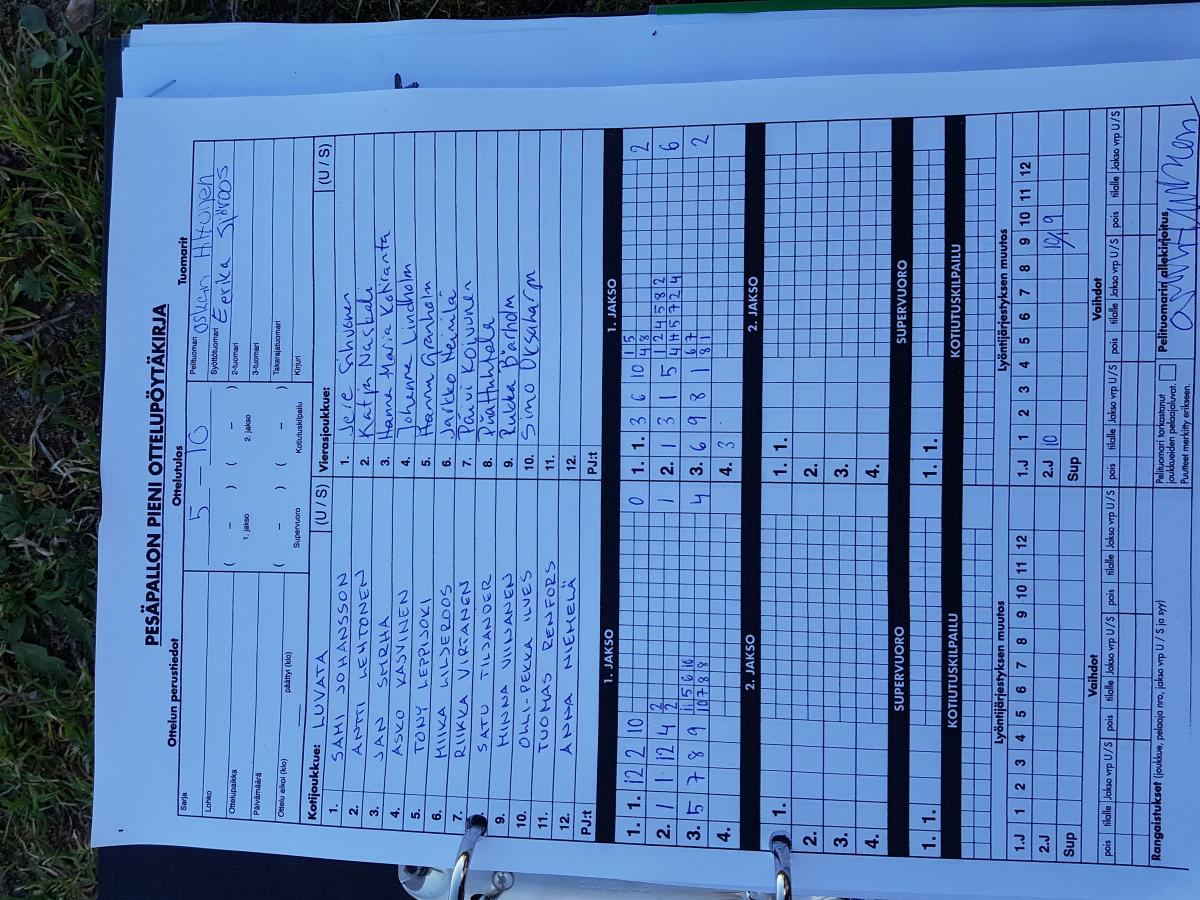 PESÄPALLON PIENI OTTELUPÖYTÄKIRJA
Ottelun perustiedot
Sarja
Lohko
Ottelupaikka
Päivämäärä
Ottelu alkoi (klo) päättyi (klo)
Ottelutulos
5 – 10
( – ) ( – )
1. jakso 2. jakso
( – ) ( – )
Supervuoro Kotiutuskilpailu
Tuomarit
Pelituomari Oskari Hiltunen
Syöttötuomari Eerika Sjöroos
2-tuomari
3-tuomari
Takarajatuomari
Kirjuri
Kotijoukkue: LUVATA (U / S)
1. SAMI JOHANSSON
2. ANTTI LEHTONEN
3. JAN SMRHA
4. ASKO KASVINEN
5. TONY LEPPIJOKI
6. MIIKA LILJEROOS
7. RIIKKA VIRTANEN
8. SATU TILJANDER
9. MINNA VIINANEN
10. OLLI-PEKKA ILVES
11. TUOMAS RENFORS
12. ANNA NIEMELÄ
PJ:t
Vierasjoukkue: (U / S)
1. Jere Sihvonen
2. Katja Näskäli
3. Hanna Maria Kotiranta
4. Johanna Lindholm
5. Hannu Granholm
6. Jarkko Heinilä
7. Päivi Koivunen
8. Piia
9. Pukka Bärholm
10. Simo Uksanarpi
11.
12.
PJ:t
1. JAKSO
1. 1. 12 2 10 0
2. 1 1 12 4 2 2 1
3. 5 7 8 9 10 11 7 5 8 6 8 10 4
4.
1. JAKSO
1. 1. 3 6 10 4 1 8 5 2
2. 1 3 1 5 6
3. 6 9 8 1 8 6 1 7 2
4. 3
2. JAKSO
1. 1.
2.
3.
4.
2. JAKSO
1. 1.
2.
3.
4.
SUPERVUORO
1. 1.
SUPERVUORO
1. 1.
KOTIUTUSKILPAILU
KOTIUTUSKILPAILU
Lyöntijärjestyksen muutos
1.J 1 2 3 4 5 6 7 8 9 10 11 12
2.J
Sup
Lyöntijärjestyksen muutos
1.J 1 2 3 4 5 6 7 8 9 10 11 12
2.J 10 10/9
Sup
Vaihdot
pois tilalle Jakso vrp U / S pois tilalle Jakso vrp U / S pois tilalle Jakso vrp U / S
Vaihdot
pois tilalle Jakso vrp U / S pois tilalle Jakso vrp U / S pois tilalle Jakso vrp U / S
Rangaistukset (joukkue, pelaaja nro, jakso vrp U / S ja syy)
Pelituomari tarkastanut
joukkueiden pelaajaluvat.
Puutteet merkitty erikseen.
Pelituomarin allekirjoitus